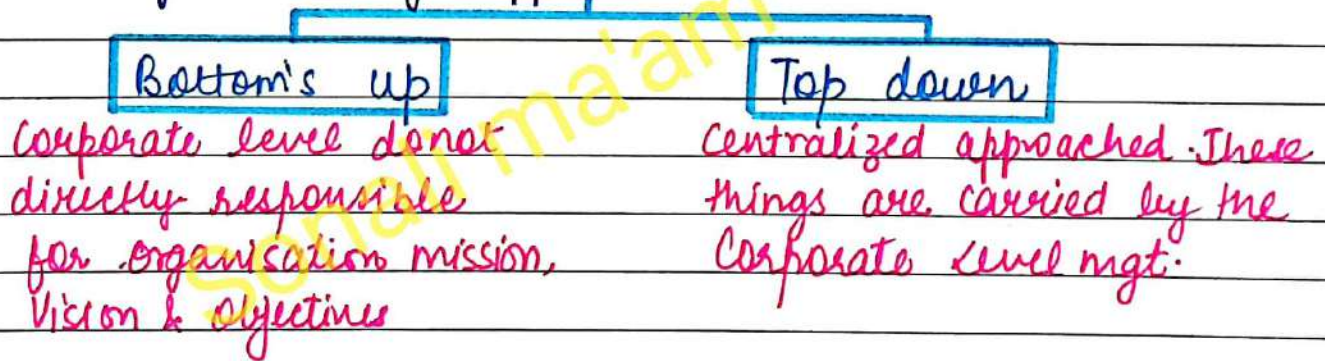 Bottom's up
Corporate level donot
directly responsible
for organisation mission,
Vision & objectives
Top down
Centralized approached. These
things are carried by the
Corporate level mgt.
Sonali ma'am